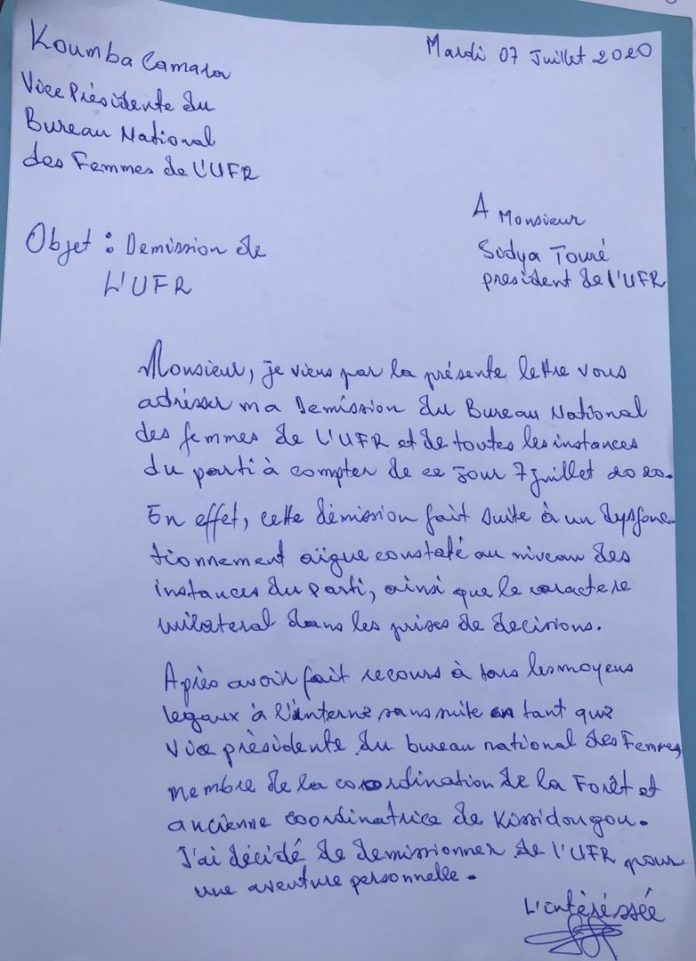 Koumba Camara
Mardi 07 Juillet 2020
Vice Présidente du
Bureau National
des Femmes de L'UFR
A Monsieur
Sidya Touré
président de l'UFR
Objet : Demission de
L'UFR
Monsieur, je viens par la présente lettre vous
adresser ma Demission du Bureau National
des femmes de L'UFR et de toutes les instances
du parti à compter de ce jour 7 juillet 2020.
En effet, cette démission fait suite à un dysfonc
tionnement aïgue constaté au niveau des
instances du Parti, ainsi que le caractere
unilateral dans les prises de decisions.
Après avoir fait recours à tous les moyens
legaux à l'interne sans suite en tant que
Vice présidente du bureau national des Femmes,
membre de la coordination de la Forêt et
ancienne coordinatrice de Kissidougou.
J'ai décidé de demissionner de l'UFR pour
une aventure personnelle.
L'intéréssée